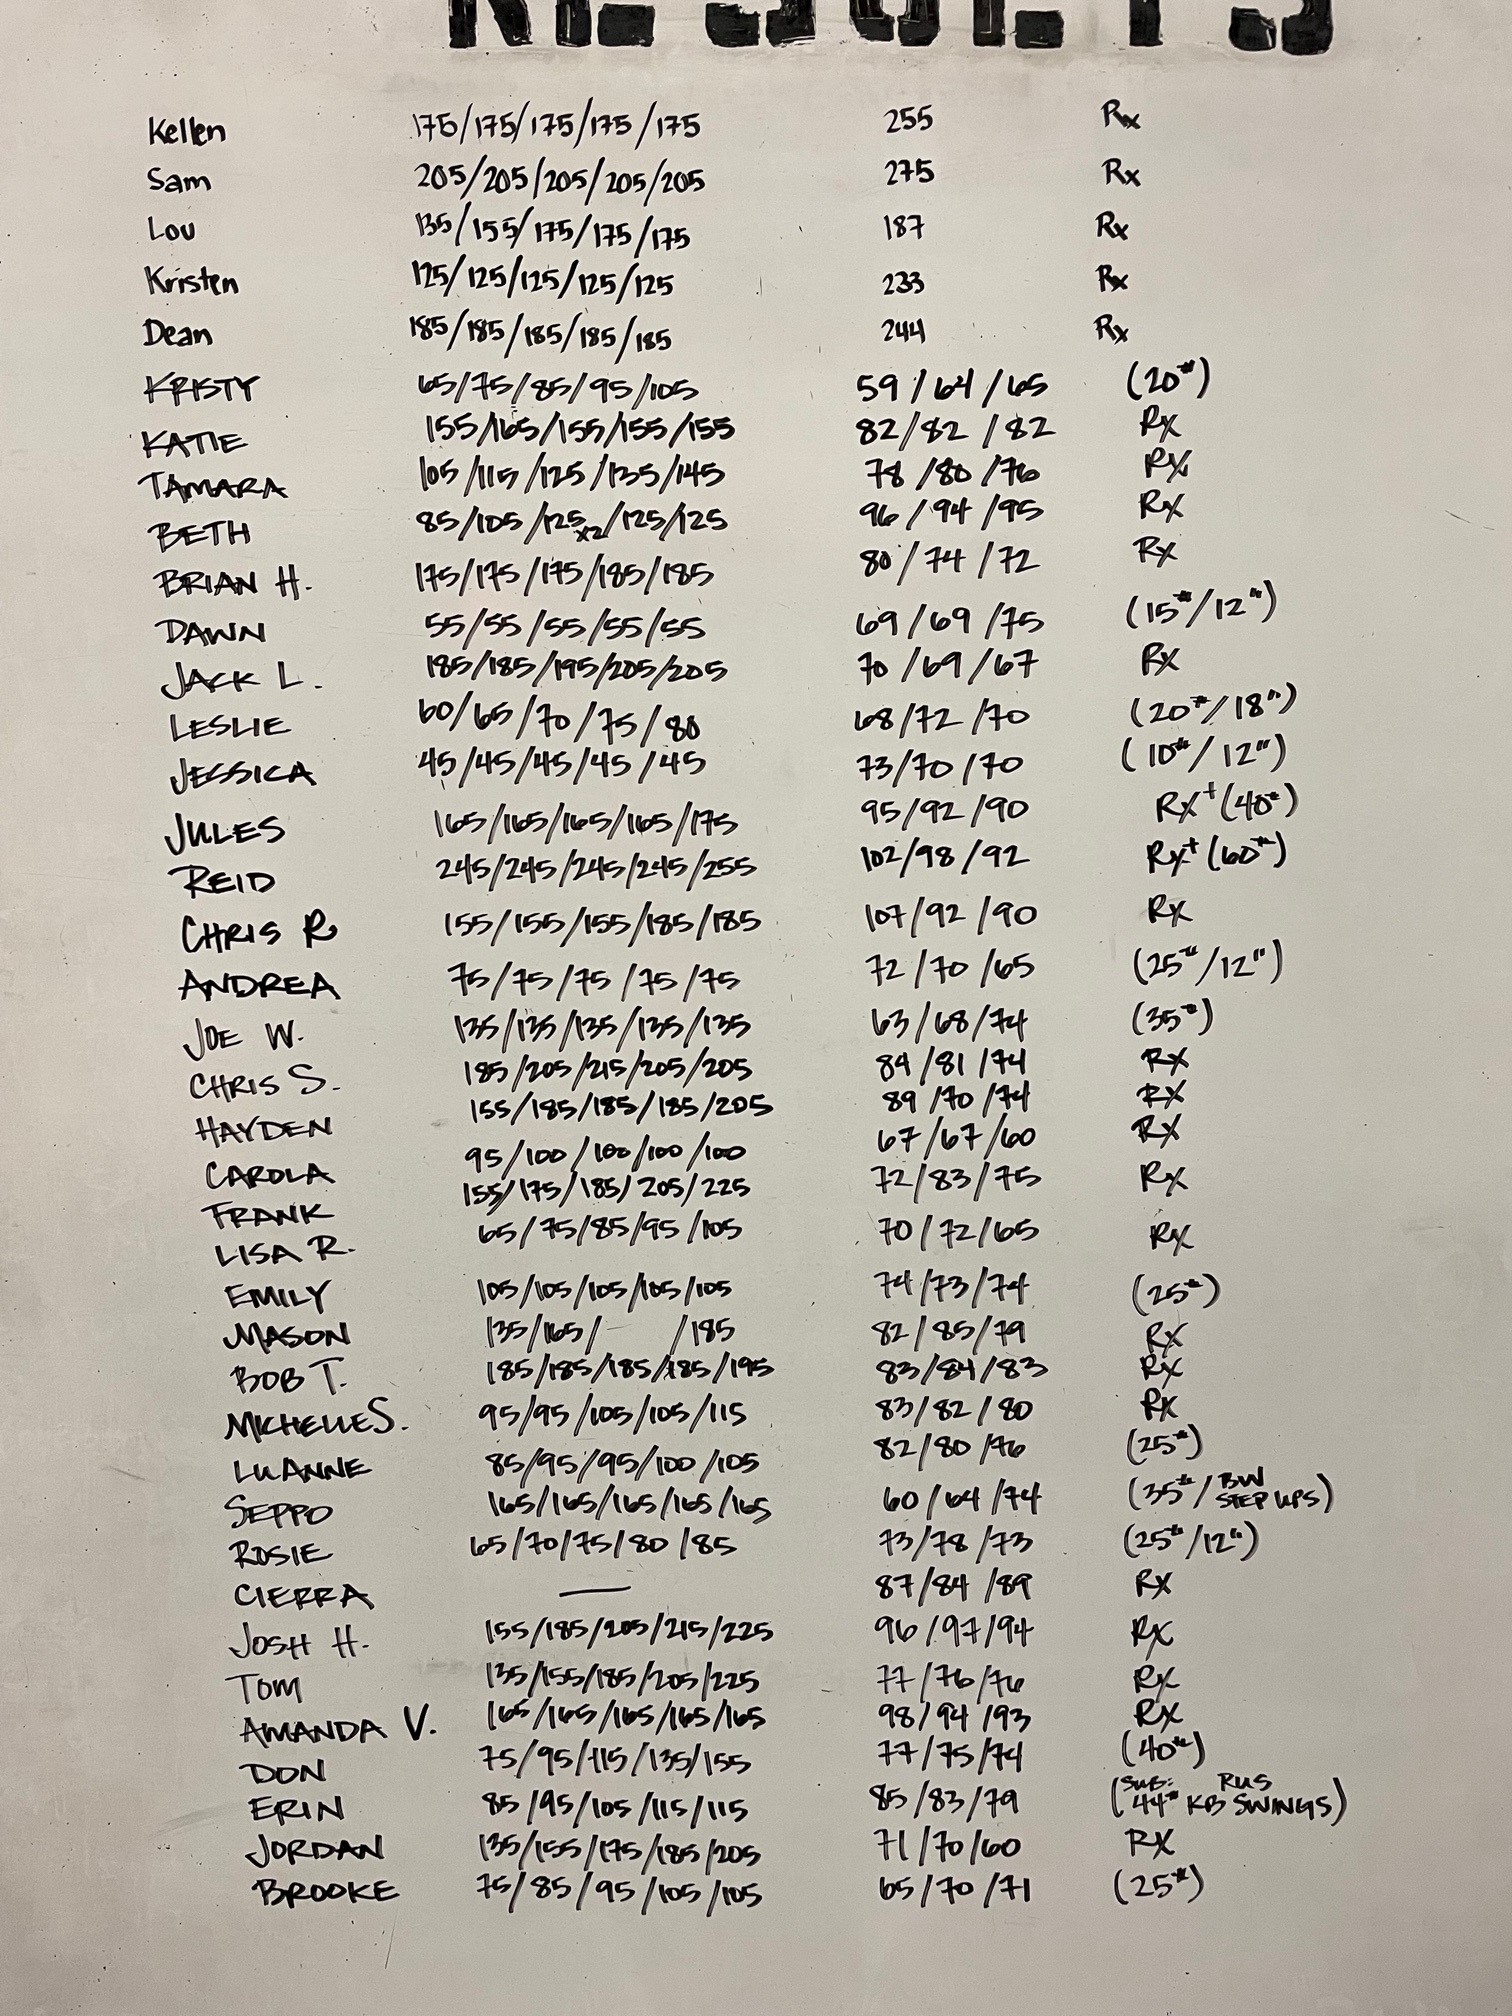 RESULTS
Kellen 175/175/175/175/175 255 Rx
Sam 205/205/205/205/205 275 Rx
Lou 135/155/175/175/175 187 Rx
Kristen 125/125/125/125/125 233 Rx
Dean 185/185/185/185/185 244 Rx
KRISTY 65/75/85/95/105 59/64/65 (20#)
KATIE 155/165/155/155/155 82/82/82 Rx
TAMARA 105/115/125/135/145 78/80/76 Rx
BETH 85/105/125x2/125/125 96/94/95 Rx
BRIAN H. 175/175/175/185/185 80/74/72 Rx
DAWN 55/55/55/55/55 69/69/75 (15#/12")
JACK L. 185/185/195/205/205 70/69/67 Rx
LESLIE 60/65/70/75/80 68/72/70 (20#/18")
JESSICA 45/45/45/45/45 73/70/70 (10#/12")
JULES 165/165/165/165/175 95/92/90 Rx+ (40#)
REID 245/245/245/245/255 102/98/92 Rx+ (60#)
CHRIS R 155/155/155/185/185 107/92/90 Rx
ANDREA 75/75/75/75/75 72/70/65 (25#/12")
JOE W. 135/135/135/135/135 63/68/74 (35#)
CHRIS S. 185/205/215/205/205 84/81/74 Rx
HAYDEN 155/185/185/185/205 89/70/74 Rx
CAROLA 95/100/100/100/100 67/67/60 Rx
FRANK 155/175/185/205/225 72/83/75 Rx
LISA R. 65/75/85/95/105 70/72/65 Rx
EMILY 105/105/105/105/105 74/73/74 (25#)
MASON 135/165/ /185 82/85/79 Rx
BOB T. 185/185/185/185/195 83/84/83 Rx
MICHELLE S. 95/95/105/105/115 83/82/80 Rx
LUANNE 85/95/95/100/105 82/80/76 (25#)
SEPPO 165/165/165/165/165 60/64/74 (35#/BW STEP UPS)
ROSIE 65/70/75/80/85 73/78/73 (25#/12")
CIERRA — 87/84/89 Rx
JOSH H. 155/185/205/215/225 96/97/94 Rx
TOM 135/155/185/205/225 77/76/76 Rx
AMANDA V. 165/165/165/165/165 98/94/93 Rx
DON 75/95/115/135/155 77/75/74 (40#)
ERIN 85/95/105/115/115 85/83/79 (SUB: 44# RUS KB SWINGS)
JORDAN 135/155/175/185/205 71/70/60 Rx
BROOKE 75/85/95/105/105 65/70/71 (25#)